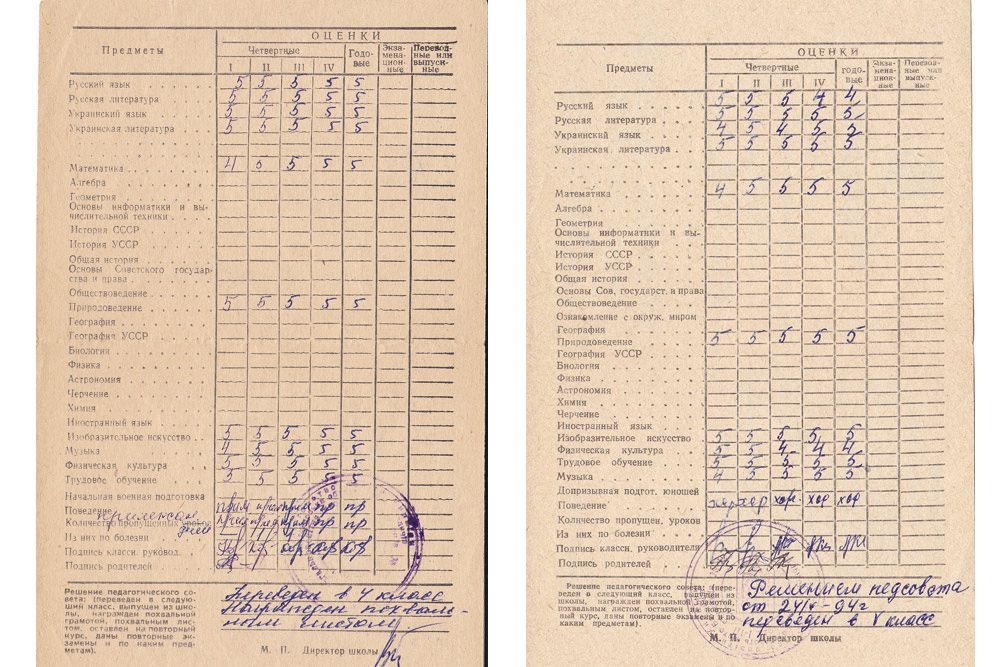 Предметы
ОЦЕНКИ
Четвертные
Годовые
Экза-
мена-
цион-
ные
Перевод-
ные или
выпуск-
ные
I II III IV
Русский язык 5 5 5 5 5
Русская литература 5 5 5 5 5
Украинский язык 5 5 5 5 5
Украинская литература 5 5 5 5 5
Математика 4 5 5 5 5
Алгебра
Геометрия
Основы информатики и вы-
числительной техники
История СССР
История УССР
Общая история
Основы Советского государ-
ства и права
Обществоведение
Природоведение 5 5 5 5 5
География
География УССР
Биология
Физика
Астрономия
Черчение
Химия
Иностранный язык
Изобразительное искусство 5 5 5 5 5
Музыка 4 5 5 5 5
Физическая культура 5 5 5 5 5
Трудовое обучение 5 5 5 5 5
Начальная военная подготовка
Поведение прим прим прим пр пр
Количество пропущенных уроков
Из них по болезни
Подпись классн. руковод.
Подпись родителей
Решение педагогического со-
вета: (переведен в следую-
щий класс, выпущен из шко-
лы, награжден похвальной
грамотой, похвальным лис-
том, оставлен на повторный
курс, даны повторные эк-
замены и по каким предме-
там).
Переведен в 4 класс
Награжден похваль-
ным листом
М. П. Директор школы
Предметы
ОЦЕНКИ
Четвертные
годо-
вые
Экза-
мена-
цион-
ные
Перевод-
ные или
выпуск-
ные
I II III IV
Русский язык 5 5 5 4 4
Русская литература 5 5 5 5 5
Украинский язык 4 5 4 5 5
Украинская литература 5 5 5 5 5
Математика 4 5 5 5 5
Алгебра
Геометрия
Основы информатики и вы-
числительной техники
История СССР
История УССР
Общая история
Основы Сов. государст. и права
Обществоведение
Ознакомление с окруж. миром
География
Природоведение 5 5 5 5 5
География УССР
Биология
Физика
Астрономия
Химия
Черчение
Иностранный язык
Изобразительное искусство 5 5 5 5 5
Физическая культура 5 5 4 4 4
Трудовое обучение 5 5 5 5 5
Музыка 4 5 5 5 5
Допризывная подгот. юношей
Поведение хор хор хор. хор хор
Количество пропущен. уроков
Из них по болезни
Подпись классн. руководителя
Подпись родителей
Решение педагогического совета: (пере-
веден в следующий класс, выпущен из
школы, награжден похвальной грамотой,
похвальным листом, оставлен на повтор-
ный курс, даны повторные экзамены и по
каким предметам).
Решением педсовета
от
переведен в V класс
М. П. Директор школы